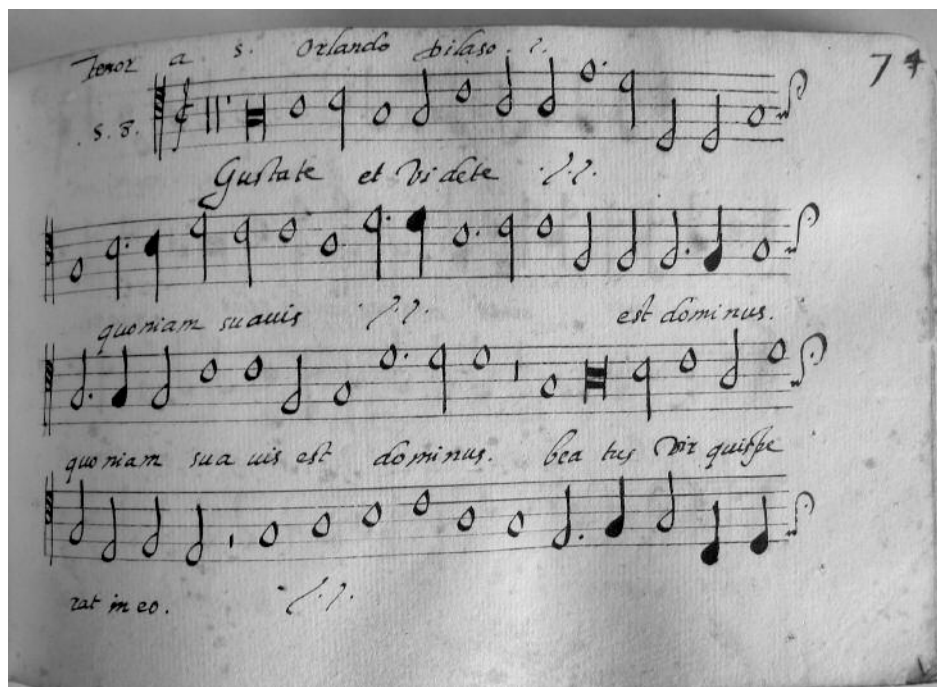 Tenor a 5. Orlando di laso. 74
.5.8.
Gustate et Videte
quoniam suauis est dominus.
quoniam sua uis est dominus. bea tus Vir quispe
rat in eo.